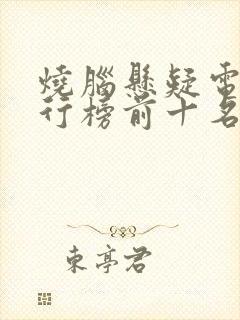 燒腦懸疑電
行榜前十名
東亭君